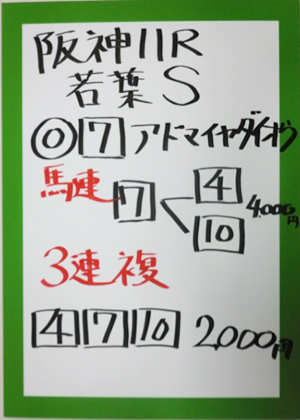 阪神11R
若葉S
◎7アドマイヤダイオウ
馬連 7 4 4,000円
10
3連複
4 7 10 2,000円